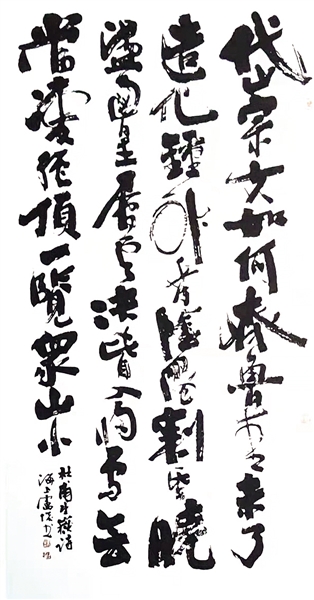 岱宗夫如何齊魯青未了
造化鍾神秀陰陽割昏曉
盪胸生層雲決眥入歸鳥會
當凌絕頂一覽眾山小
杜甫望嶽詩
海上盧